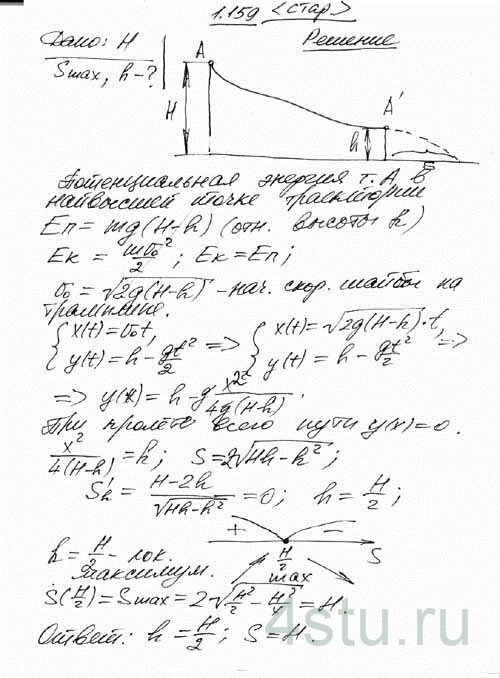 1.159 <СТАР>
Дано: H
Smax, h-?
Решение
A
H
A'
h
S
Потенциальная энергия т. A в
наивысшей точке траектории
Eп = mg(H-h) (отн. высоты h)
Eк = mv₀²/2; Eк = Eп;
v₀ = √2g(H-h) - нач. скор. шайбы на
трамплине.
{x(t) = v₀t, => {x(t) = √2g(H-h)·t, =>
{y(t) = h - gt²/2 {y(t) = h - gt²/2
=> y(x) = h - g x²/4g(H-h).
При пролете всего пути y(x) = 0.
x²/4(H-h) = h; S = 2√Hh-h²;
S'h = H-2h/√Hh-h² = 0; h = H/2;
+ -
H/2 S
h = H/2 - лок.
максимум.
max
S(H/2) = Smax = 2√H²/2 - H²/4 = H.
Ответ: h = H/2; S = H.
4stu.ru